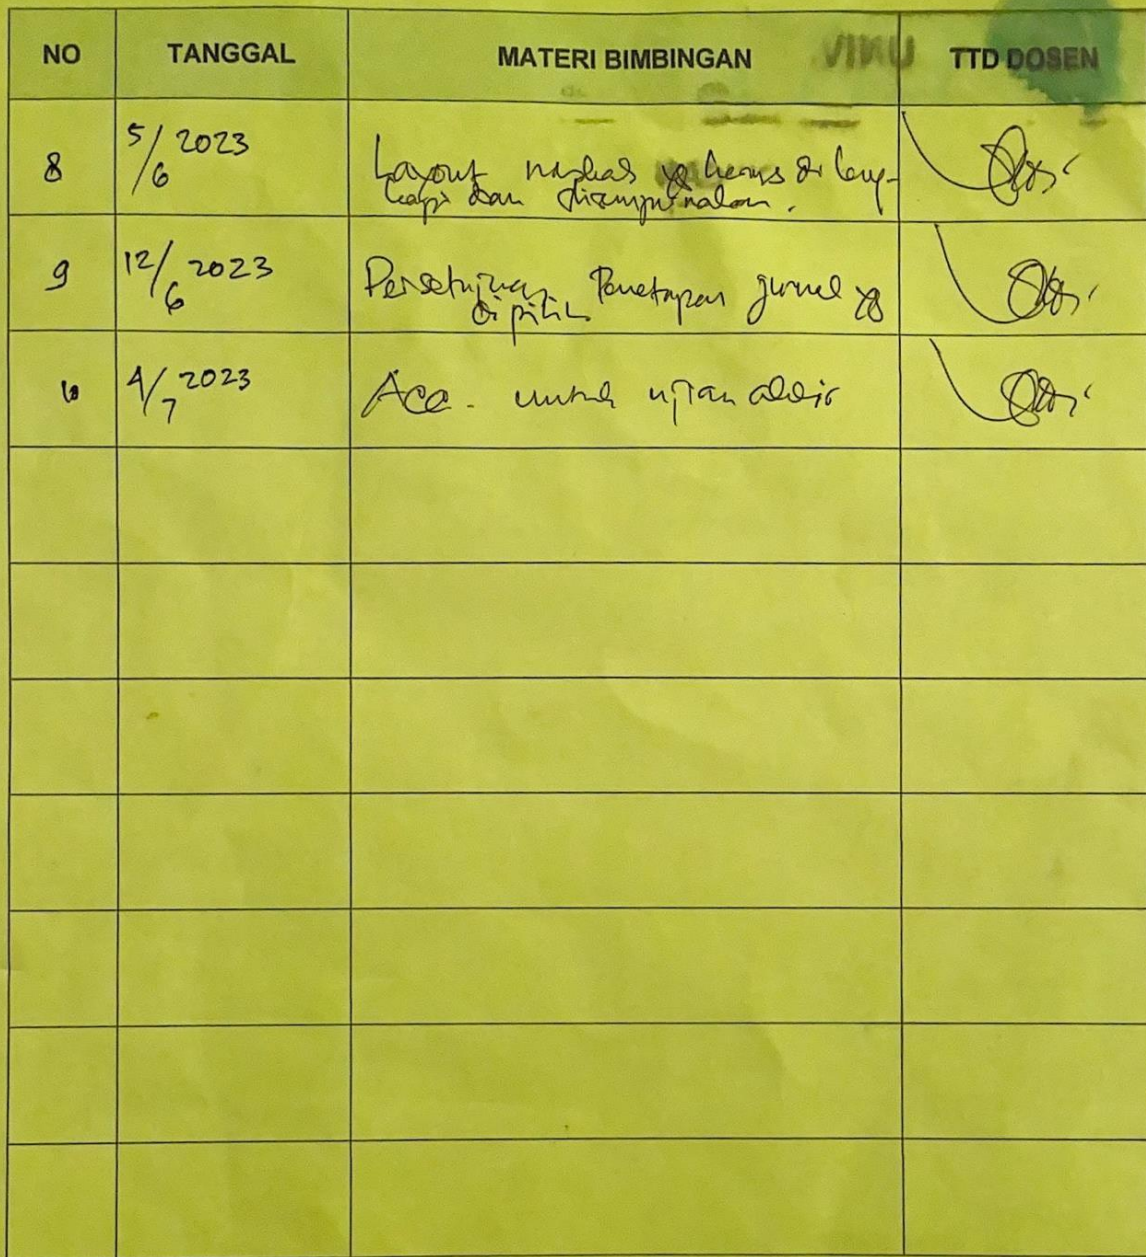 NO TANGGAL MATERI BIMBINGAN TTD DOSEN
8 5/6 2023 Layout naskah yg harus di leng-
kapi dan disempurnakan.
9 12/6 2023 Persetujuan Penetapan jurnal yg
dipilih
10 4/7 2023 Acc. untuk ujian akhir